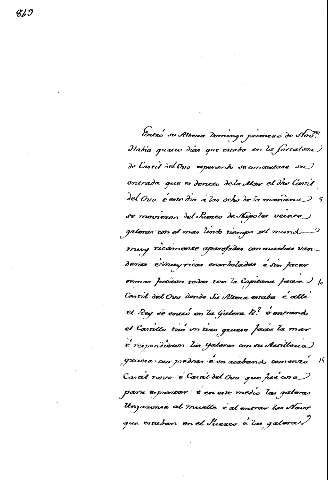 819
Entró su Alteza Domingo primero de Nov.e
Había quatro días que estaba en la fortaleza
de Castil del Ovo esperando se concertase su
entrada que es dentro de la Mar el dho Castil
del Ovo é este dia a las ocho de la mañana
se movieron del Puerto de Napoles veinte
galeras con el mas lindo tiempo del mundo
muy ricamente aparejadas con muchas van-
deras é muy ricas enarboladas é sin facer
Castil del Ovo donde Su Alteza estaba é allí
el Rey se metió en la Galera é entrando
el Castillo tiró su tres guerra facia la mar
é respondieron las galeras con su Artilleria
gruesa con piedras é en acabando comenzó
Castil novo é Castil del Ovo que fué cosa
para espantar é en este medio las galeras
llegaronse al muelle é al entrar las Naos
que estaban en el Puerto é las galeras